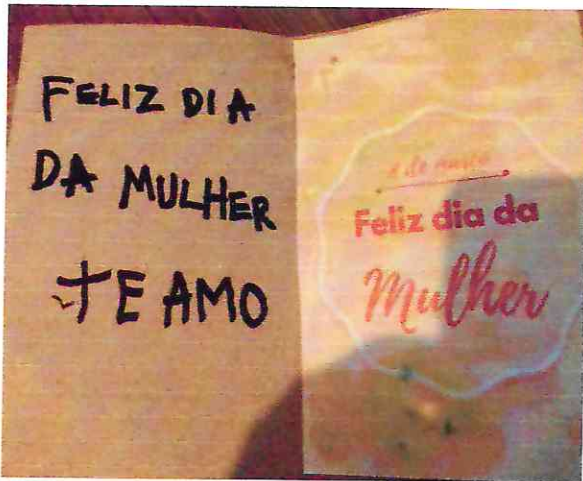 FELIZ DIA
DA MULHER
TE AMO
8 de março
Feliz dia da
Mulher